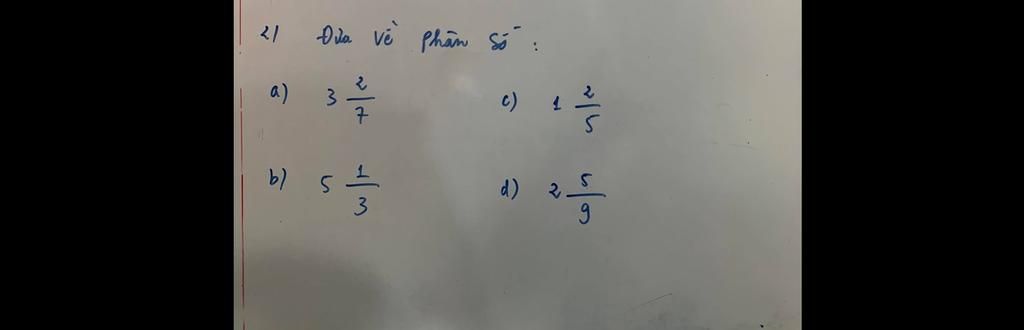 2/ Đưa về phân số:
a) 3 2/7 c) 1 2/5
b) 5 1/3 d) 2 5/9